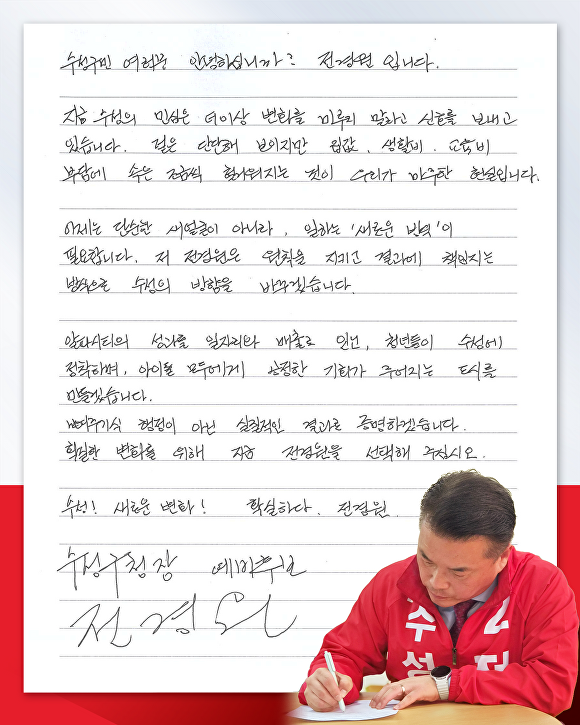 수성구민 여러분 안녕하십니까? 전경원 입니다.
지금 수성의 민심은 더이상 변화를 미루지 말라고 신호를 보내고
있습니다. 겉은 단단해 보이지만 집값, 생활비, 교육비
부담에 속은 조금씩 허약해지는 것이 우리가 마주한 현실입니다.
이제는 단순한 새얼굴이 아니라, 일하는 '새로운 방식'이
필요합니다. 저 전경원은 원칙을 지키고 결과에 책임지는
방식으로 수성의 방향을 바꾸겠습니다.
알파시티의 성과를 일자리와 매출로 잇고, 청년들이 수성에
정착하며, 아이들 모두에게 공정한 기회가 주어지는 도시를
만들겠습니다.
보여주기식 행정이 아닌 실질적인 결과로 증명하겠습니다.
확실한 변화를 위해 지금 전경원을 선택해 주십시오.
수성! 새로운 변화! 확실하다. 전경원.
수성구청장 예비후보
전경원
수 2
성 전